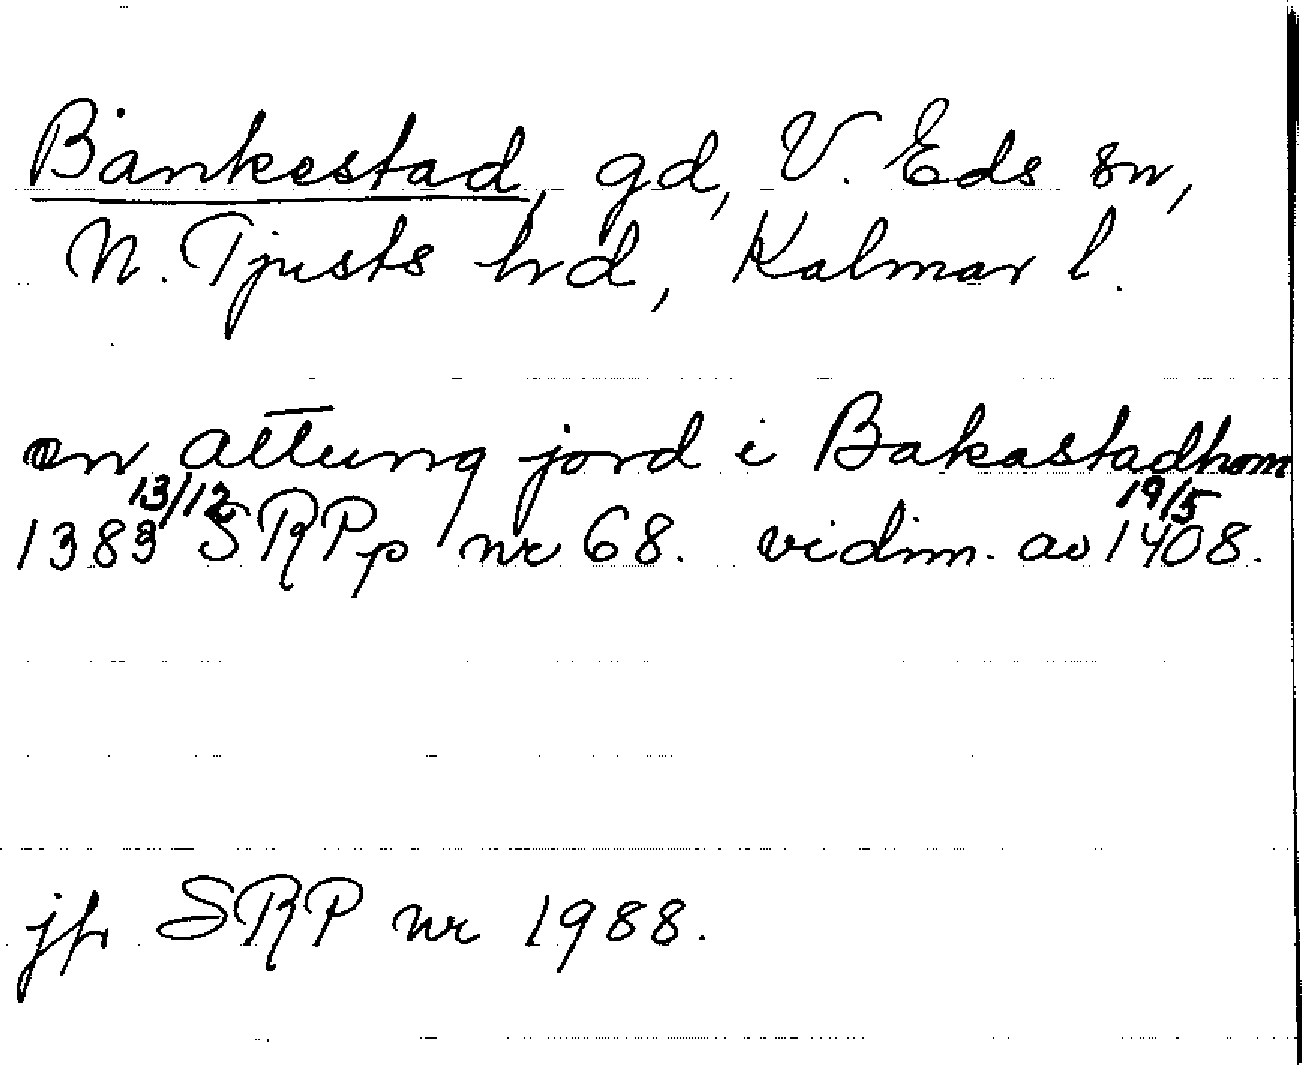 Bänkestad, gd, V. Eds sn,
N. Tjusts hrd, Kalmar l.
en attung jord i Bakastadhom
1383 13/12 SRPp nr 68. vidim. av 1408 19/5.
jfr SRP nr 1988.